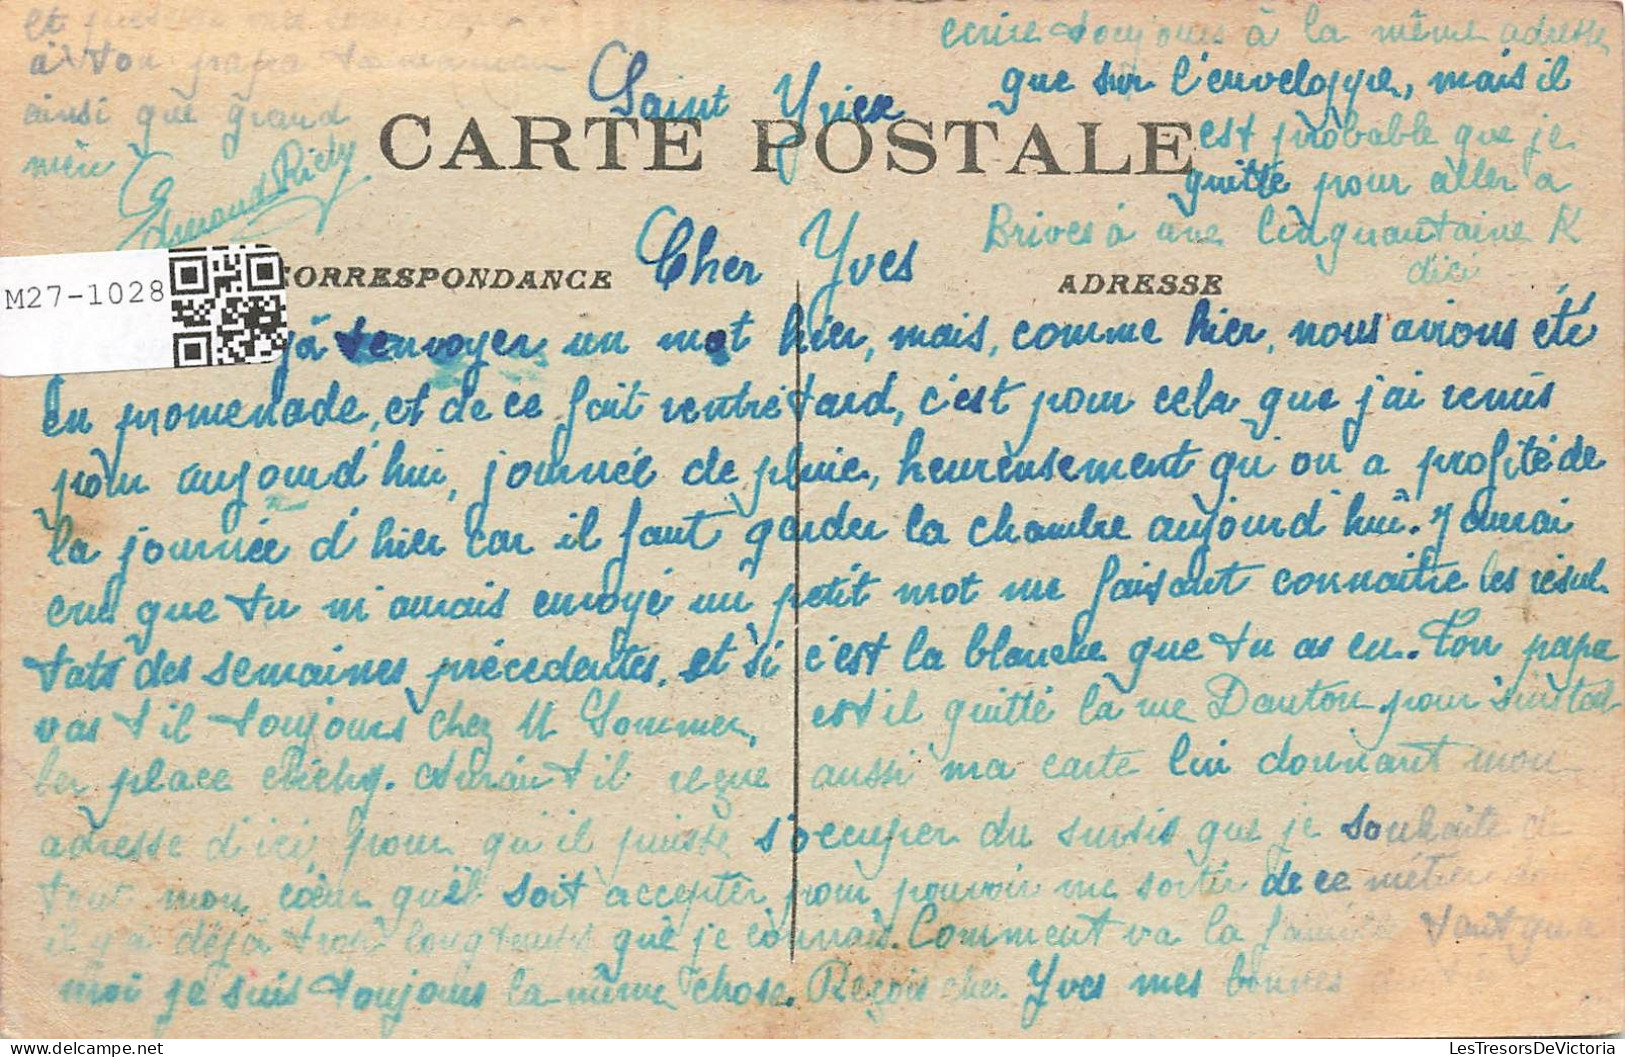 Saint Yrieix
CARTE POSTALE
CORRESPONDANCE
ADRESSE
M27-1028
Cher Yves
jà t'envoyer un mot hier, mais, comme hier, nous avions été
en promenade, et de ce fait rentré tard, c'est pour cela que j'ai remis
pour aujourd'hui, journée de pluie, heureusement qu'on a profité de
la journée d'hier car il faut garder la chambre aujourd'hui. J'aurai
cru que tu m'aurais envoyé un petit mot me faisant connaitre les résul
tats des semaines précédentes, et si c'est la blanche que tu as eu. Ton papa
vas t il toujours chez M Sommer, est il quitté la rue Danton pour s'instal
ler place Clichy. Aurait il reçue aussi ma carte lui donnant mon
adresse d'ici, pour qu'il puisse s'occuper du sursis que je souhaite de
tout mon cœur qu'il soit accepter pour pouvoir me sortir de ce métier
il y a déjà trop longtemps que je connais. Comment va la famille tant qu'a
moi je suis toujours la même chose. Reçois cher Yves mes bonnes
et
à ton papa ta maman
ainsi que grand
mère
Edmond
ecrire toujours à la même adresse
que sur l'enveloppe, mais il
est probable que je
quitte pour aller a
Brives à une cinquantaine K
dici
LesTresorsDeVictoria.com